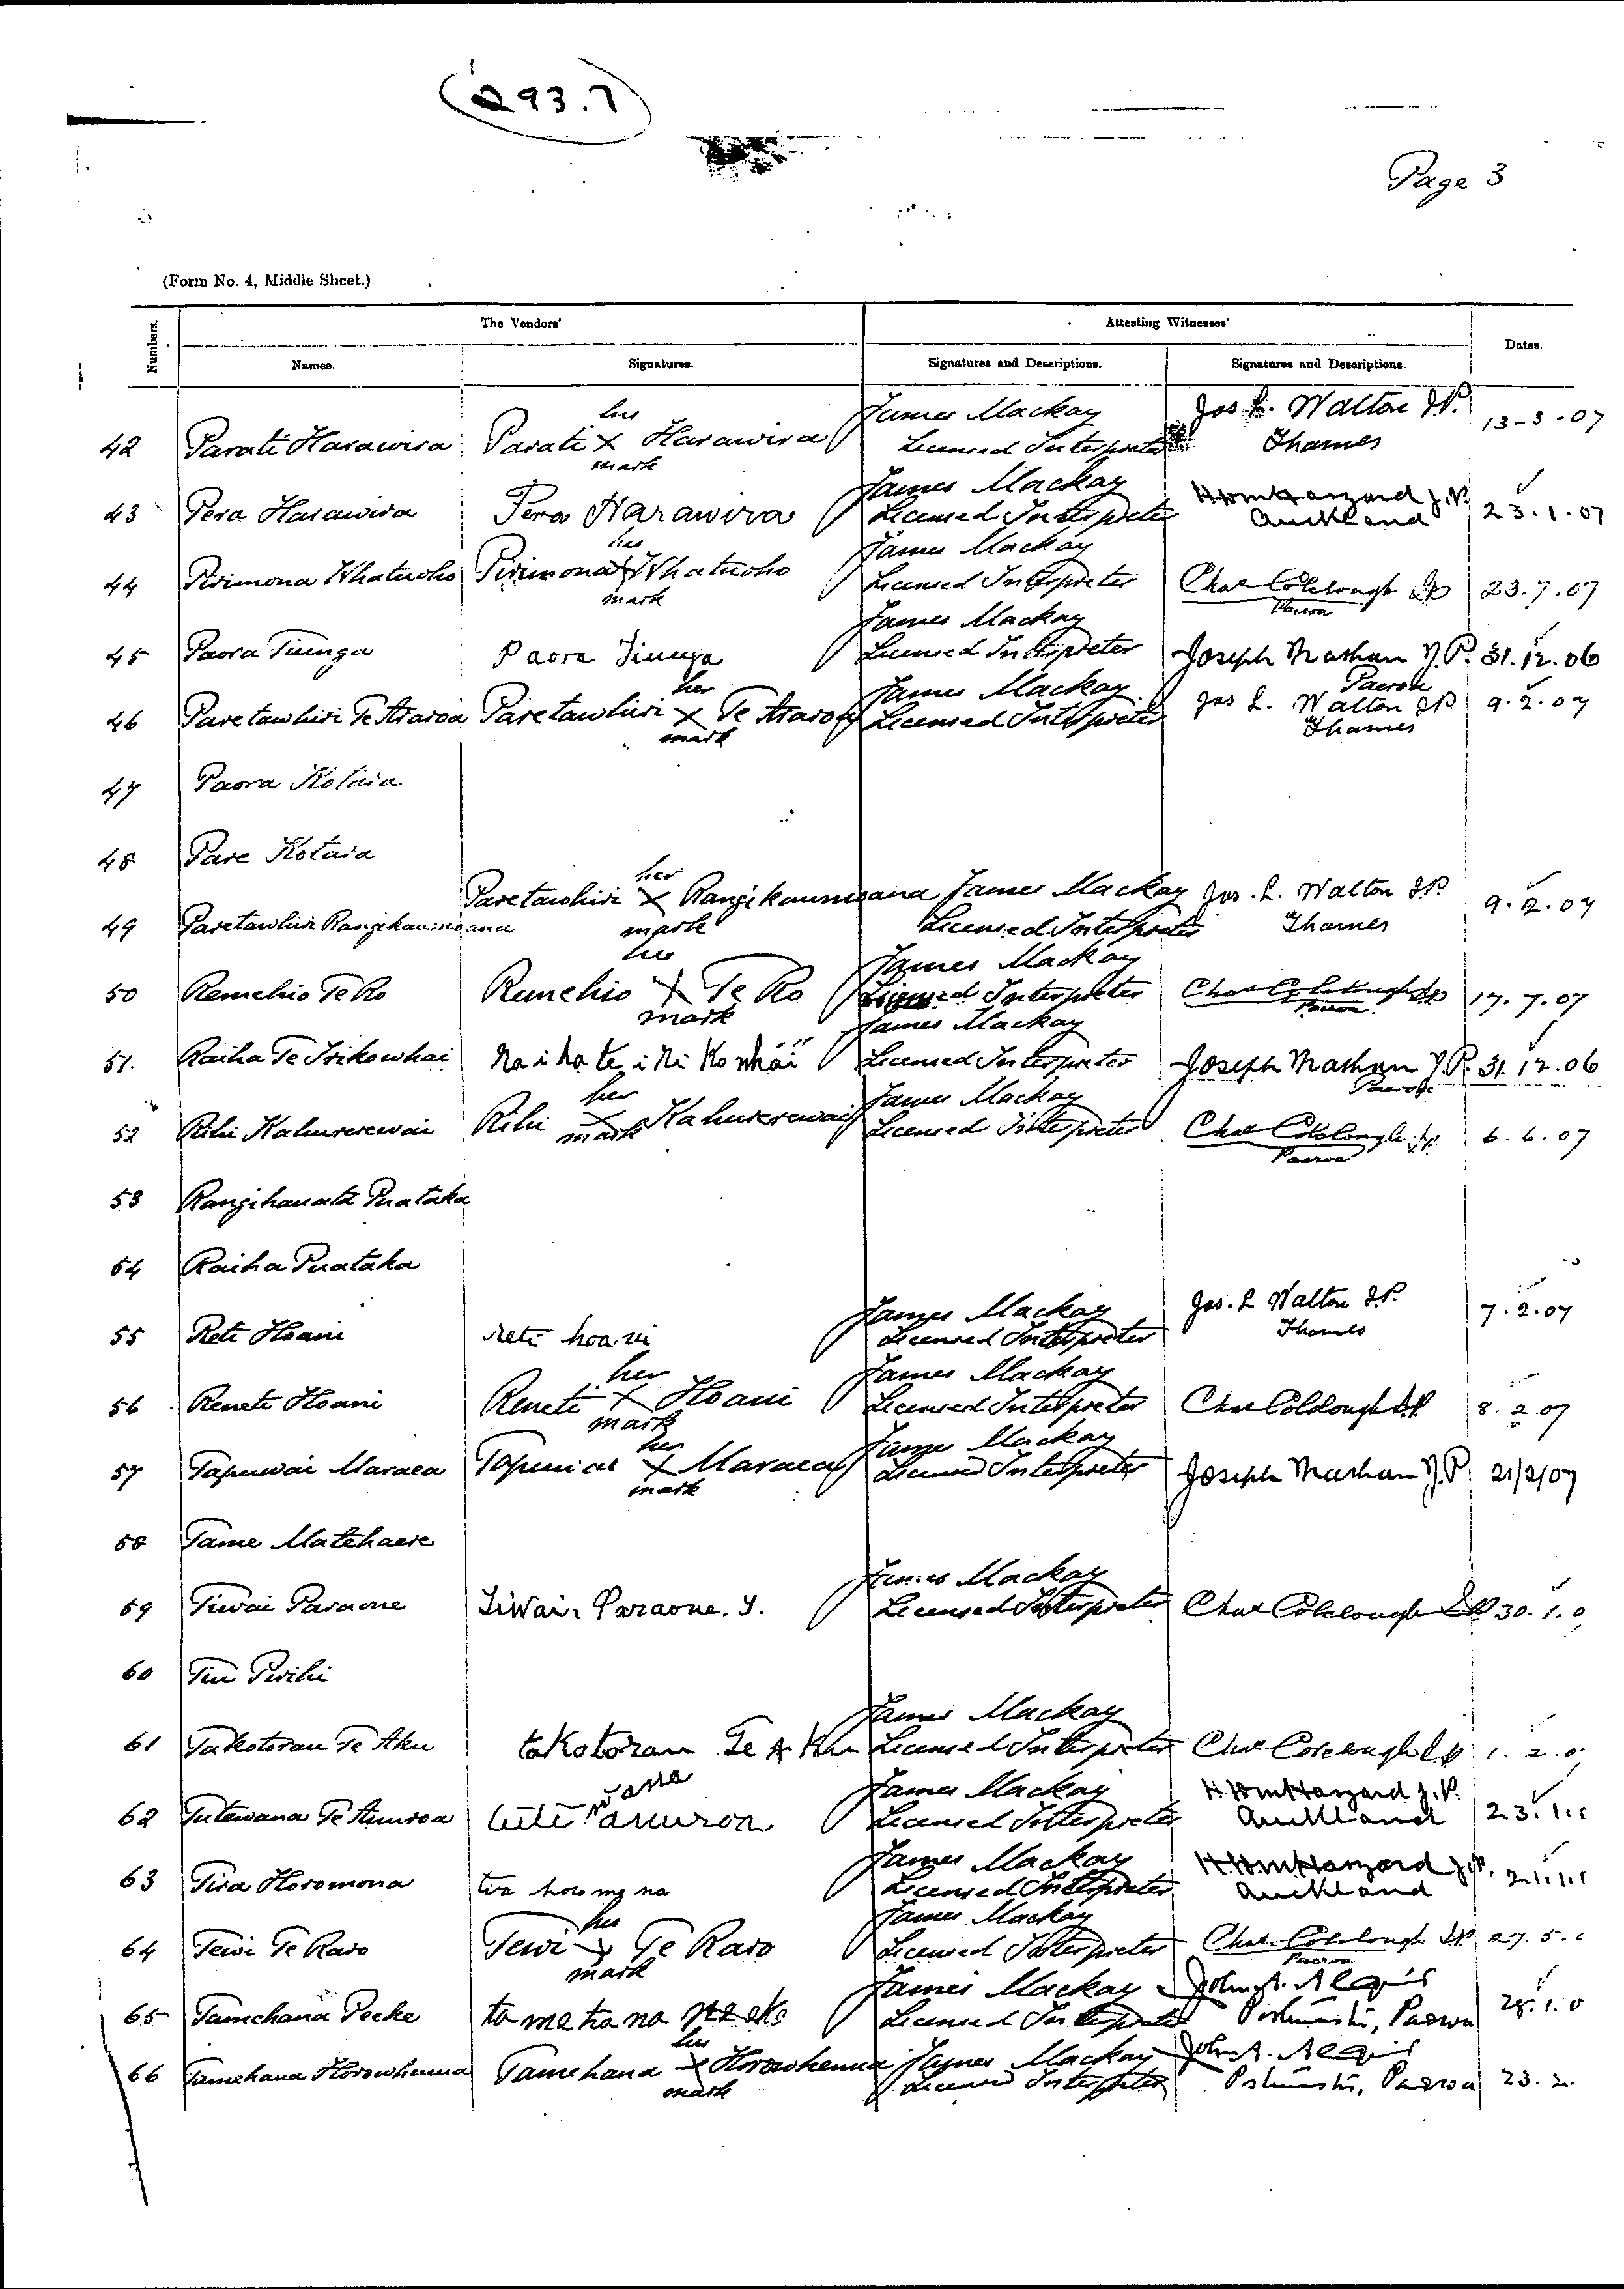 293.7
Page 3
(Form No. 4, Middle Sheet.)
Numbers.
The Vendors'
Attesting Witnesses'
Dates.
Names.
Signatures.
Signatures and Descriptions.
Signatures and Descriptions.
his
James Mackay
Jos L. Walton J.P.
13-3-07
42 Parati Harawira Parati X Harawira
Licensed Interpreter
Thames
mark
James Mackay
43 Pera Harawira Pera Harawira
Licensed Interpreter
Auckland
23.1.07
his
James Mackay
44 Pirimona Whatuoho Pirimona X Whatuoho
Licensed Interpreter
Chas Colclough JP
23.7.07
mark
Paeroa
James Mackay
45 Paora Tiunga Paora Tiunga
Licensed Interpreter
Joseph Nathan J.P. 31.12.06
Paeroa
her
James Mackay
Jos L. Walton JP
9.2.07
46 Paretawhiri Te Araroa Paretawhiri X Te Araroa
Licensed Interpreter
Thames
mark
47 Paora Kotaia
48 Pare Kotaia
her
Paretawhiri X Rangikaumoana James Mackay Jos. L. Walton J.P.
9.2.07
49 Paretawhiri Rangikaumoana
mark
Licensed Interpreter
Thames
his
James Mackay
50 Remehio Te Ro Remehio X Te Ro
Licensed Interpreter
Chas Colclough JP
17.7.07
mark
Paeroa
James Mackay
51. Raiha Te Irikowhai Raiha te iRiKowhai
Licensed Interpreter
Joseph Nathan J.P. 31.12.06
Paeroa
her
James Mackay
52 Rihi Kahurerewai Rihi X Kahurerewai
Licensed Interpreter
Chas Colclough J.P.
6.6.07
mark
Paeroa
53 Rangihauata Puataka
54 Raiha Puataka
James Mackay
Jos. L Walton J.P.
7.2.07
55 Reti Hoani reti hoani
Licensed Interpreter
Thames
her
James Mackay
56 Reneti Hoani Reneti X Hoani
Licensed Interpreter
Chas Colclough J.P.
8.2.07
mark
her
James Mackay
57 Tapuwai Maraea X Maraea
Licensed Interpreter
Joseph Nathan J.P. 21/2/07
mark
58 Tame Matehaere
James Mackay
59 Tiwai Paraone Tiwai Paraone. T.
Licensed Interpreter
Chas Colclough JP 30.1.0
60 Tiu Pirihi
James Mackay
61 Takotorau Te Aku taKotorau Te A Ku
Licensed Interpreter
Chas Colclough J.P. 1.2.0
wana
James Mackay
62 Tutewana Te Amuroa
Licensed Interpreter
Auckland
23.1.
James Mackay
63 Tira Horomona
Licensed Interpreter
Auckland
21.1.
his
James Mackay
64 Tewi Te Raro Tewi X Te Raro
Licensed Interpreter
Chas Colclough J.P. 27.5.
mark
Paeroa
James Mackay
65 Tamehana Peeke tamehana
Licensed Interpreter
Postmaster, Paeroa
28.1.0
his
James Mackay
66 Tamehana Horowhenua Tamehana X Horowhenua
Licensed Interpreter
Postmaster, Paeroa
23.2.
mark